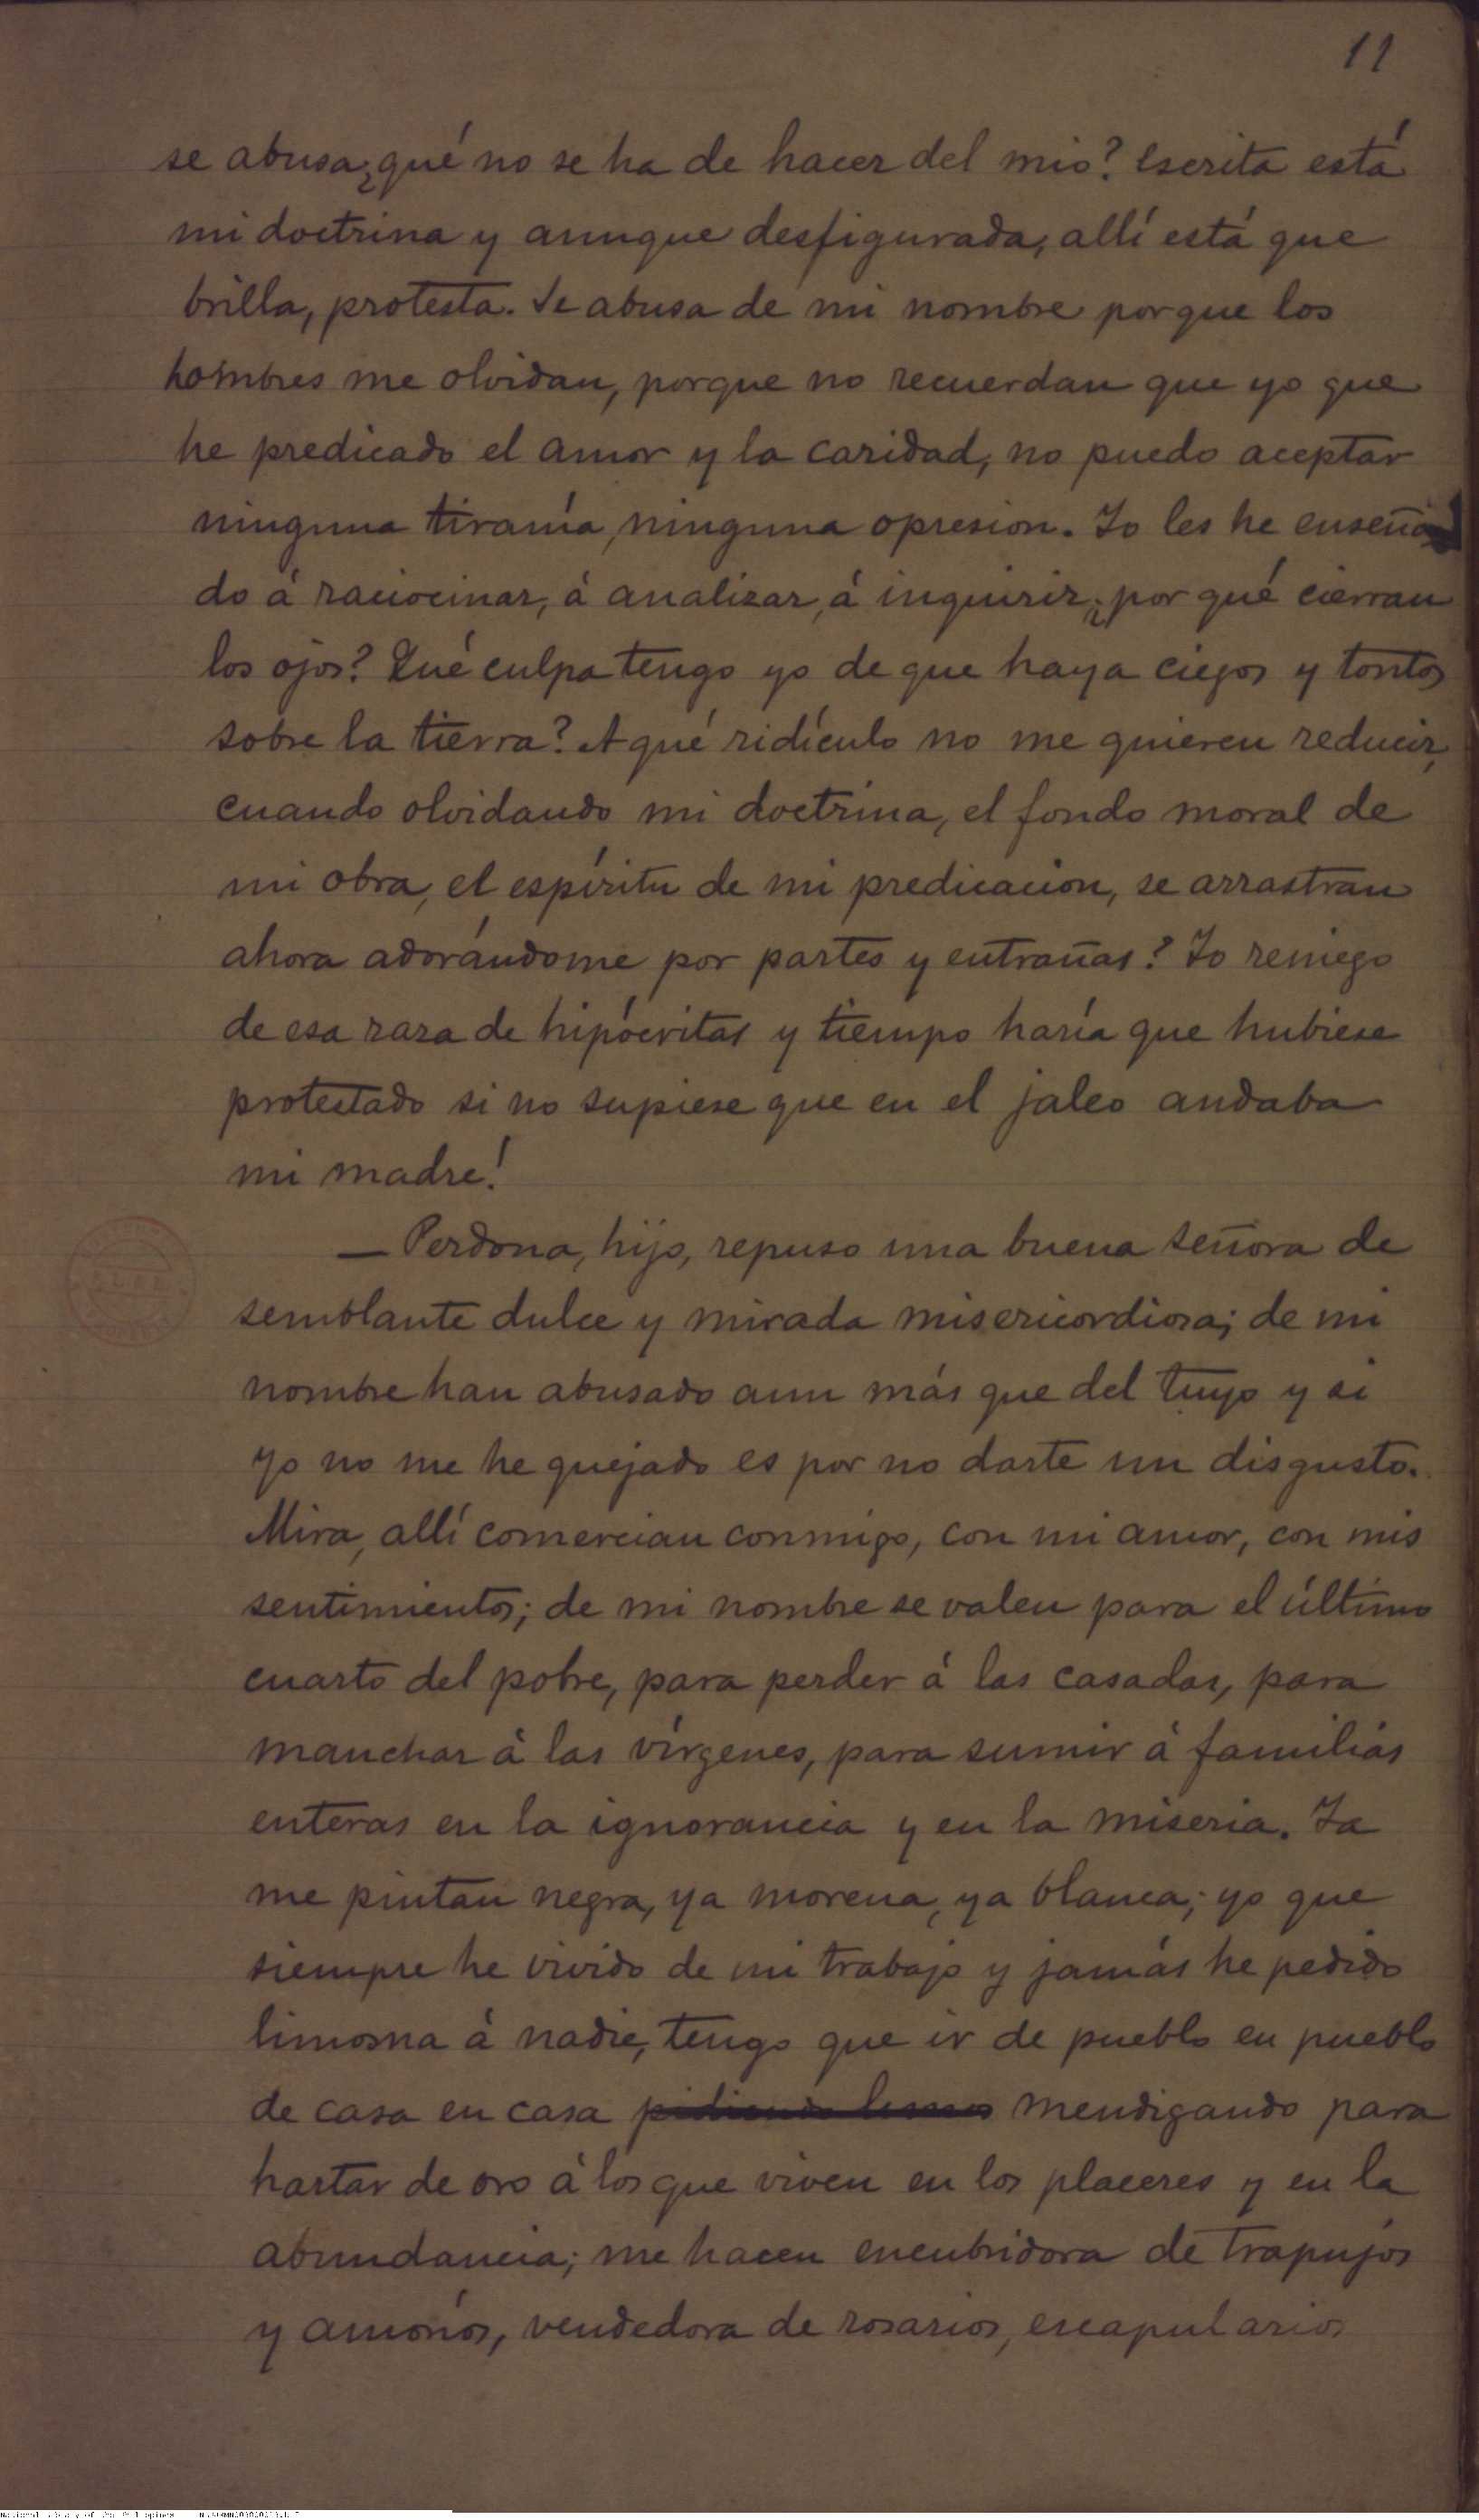 11
se abusa ¿qué no se ha de hacer del mio? Escrita está
mi doctrina y aunque desfigurada, allí está que
brilla, protesta. Se abusa de mi nombre porque los
hombres me olvidan, porque no recuerdan que yo que
he predicado el amor y la caridad, no puedo aceptar
ninguna tiranía, ninguna opresion. Yo les he enseña
do á raciocinar, á analizar, á inquirir; ¿por qué cierran
los ojos? Qué culpa tengo yo de que haya ciegos y tontos
sobre la tierra? A qué ridículo no me quieren reducir,
cuando olvidando mi doctrina, el fondo moral de
mi obra, el espíritu de mi predicacion, se arrastran
ahora adorándome por partes y entrañas? Yo reniego
de esa raza de hipócritas y tiempo haría que hubiese
protestado si no supiese que en el jaleo andaba
mi madre!
— Perdona, hijo, repuso una buena señora de
semblante dulce y mirada misericordiosa; de mi
nombre han abusado aun más que del tuyo y si
yo no me he quejado es por no darte un disgusto.
Mira, allí comercian conmigo, con mi amor, con mis
sentimientos; de mi nombre se valen para el último
cuarto del pobre, para perder á las casadas, para
manchar á las vírgenes, para sumir á familias
enteras en la ignorancia y en la miseria. Ya
me pintan negra, ya morena, ya blanca; yo que
siempre he vivido de mi trabajo y jamás he pedido
limosna á nadie, tengo que ir de pueblo en pueblo
de casa en casa pidiendo limos mendigando para
hartar de oro á los que viven en los placeres y en la
abundancia; me hacen encubridora de trapujos
y amoríos, vendedora de rosarios, escapularios